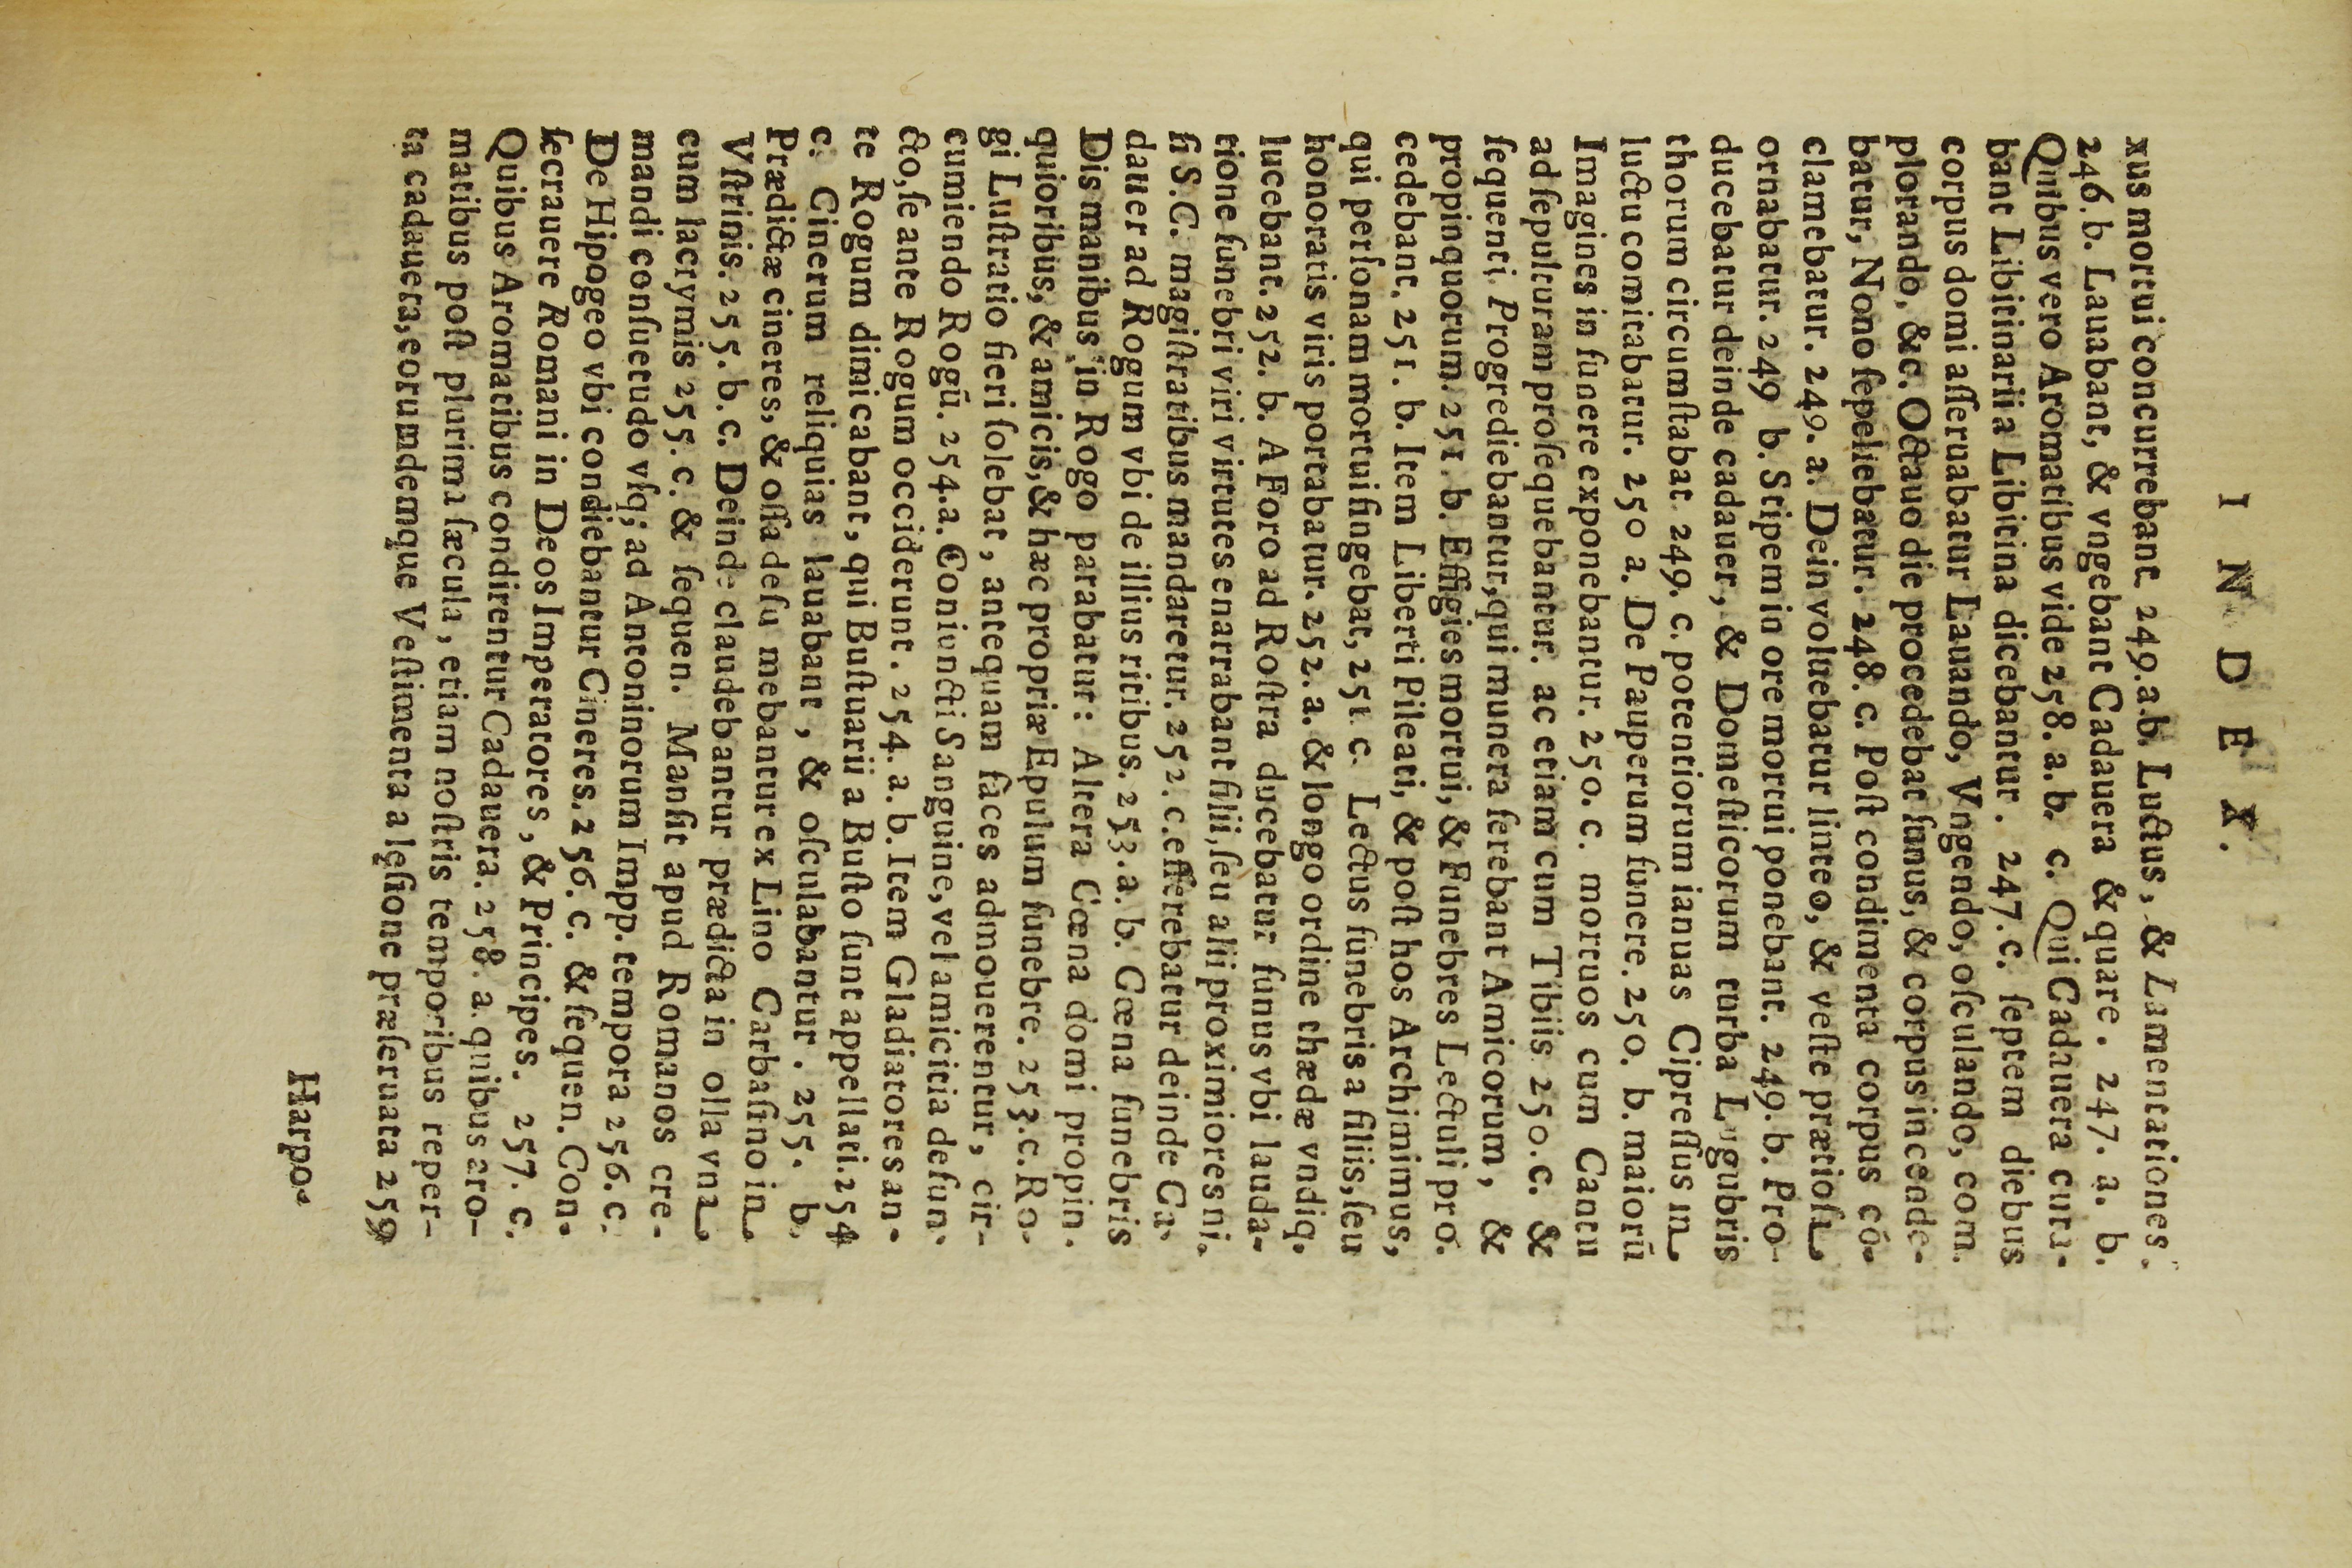 I N D E X.
xus mortui concurrebant. 249. a.b. Luctus, & Lamentationes.
246. b. Lauabant, & vngebant Cadauera & quare. 247. a. b.
Quibus vero Aromatibus vide 258. a. b. c. Qui Cadauera cura-
bant Libitinarii a Libitina dicebantur. 247. c. ſeptem diebus
corpus domi aſſeruabatur Lauando, Vngendo, oſculando, com
plorando, &c. Octauo die procedebat funus, & corpus incende-
batur, Nono ſepeliebatur. 248. c. Poſt condimenta corpus cō-
clamebatur. 249. a. Dein voluebatur linteo, & veſte prætioſa
ornabatur. 249 b. Stipem in ore mortui ponebant. 249. b. Pro-
ducebatur deinde cadauer, & Domeſticorum turba Lugubris
thorum circumſtabat 249. c. potentiorum ianuas Cipreſſus in
luctu comitabatur. 250 a. De Pauperum funere. 250. b. maiorū
Imagines in funere exponebantur. 250. c. mortuos cum Cantu
ad ſepulturam proſequebantur. ac etiam cum Tibiis 250. c. &
ſequenti. Progrediebantur, qui munera ferebant Amicorum, &
propinquorum. 251. b. Effigies mortui, & Funebres Lectuli pro.
cedebant. 251. b. Item Liberti Pileati, & poſt hos Archimimus,
qui perſonam mortui fingebat, 251. c. Lectus funebris a filiis, ſeu
honoratis viris portabatur. 252. a. & longo ordine thædæ vndiq.
lucebant. 252. b. A Foro ad Roſtra ducebatur funus vbi lauda-
tione funebri viri virtutes enarrabant filii, ſeu alii proximiores ni.
ſi S.C. magiſtratibus mandaretur. 252. c. efferebatur deinde Ca-
dauer ad Rogum vbi de illius ritibus. 253. a. b. Cœna funebris
Dis manibus in Rogo parabatur: Altera Cœna domi propin.
quioribus, & amicis, & hæc propriæ Epulum funebre. 253. c. Ro-
gi Luſtratio fieri ſolebat, antequam faces admouerentur, cir-
cumiendo Rogū. 254. a. Coniuncti Sanguine, vel amicitia defun-
cto, ſe ante Rogum occiderunt. 254. a. b. Item Gladiatores an-
te Rogum dimicabant, qui Buſtuarii a Buſto ſunt appellati. 254
c. Cinerum reliquias lauabant, & oſculabantur. 255. b.
Prædictæ cineres, & oſſa deſumebantur ex Lino Carbaſino in
Vſtrinis. 255. b. c. Deinde claudebantur prædicta in olla vna
cum lacrymis 255. c. & ſequen. Manſit apud Romanos cre-
mandi conſuetudo vſq; ad Antoninorum Impp. tempora 256. c.
De Hipogeo vbi condiebantur Cineres. 256. c. & ſequen. Con-
ſecrauere Romani in Deos Imperatores, & Principes. 257. c.
Quibus Aromatibus condirentur Cadauera. 258. a. quibus aro-
matibus poſt plurima ſæcula, etiam noſtris temporibus reper-
ta cadauera, eorumdemque Veſtimenta a leſione præſeruata 259
Harpo-